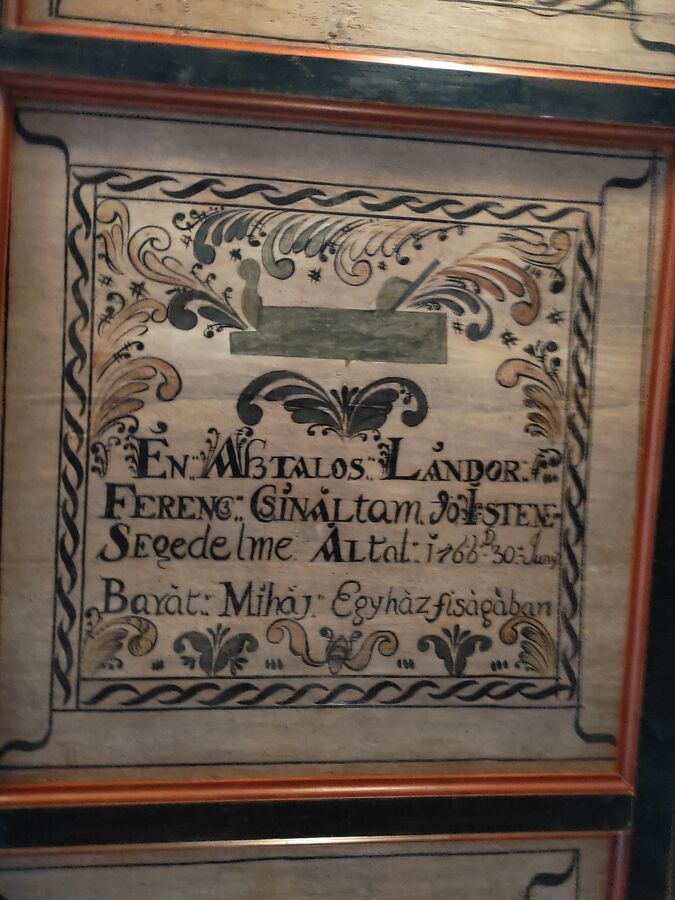 Én:: Asztalos:: Lándor::
Ferenc:: Csináltam Jó Istene-
Segedelme Által:: 1766 D 30: Juny
Barát:: Mihàj:: Egyhàzfiságàban